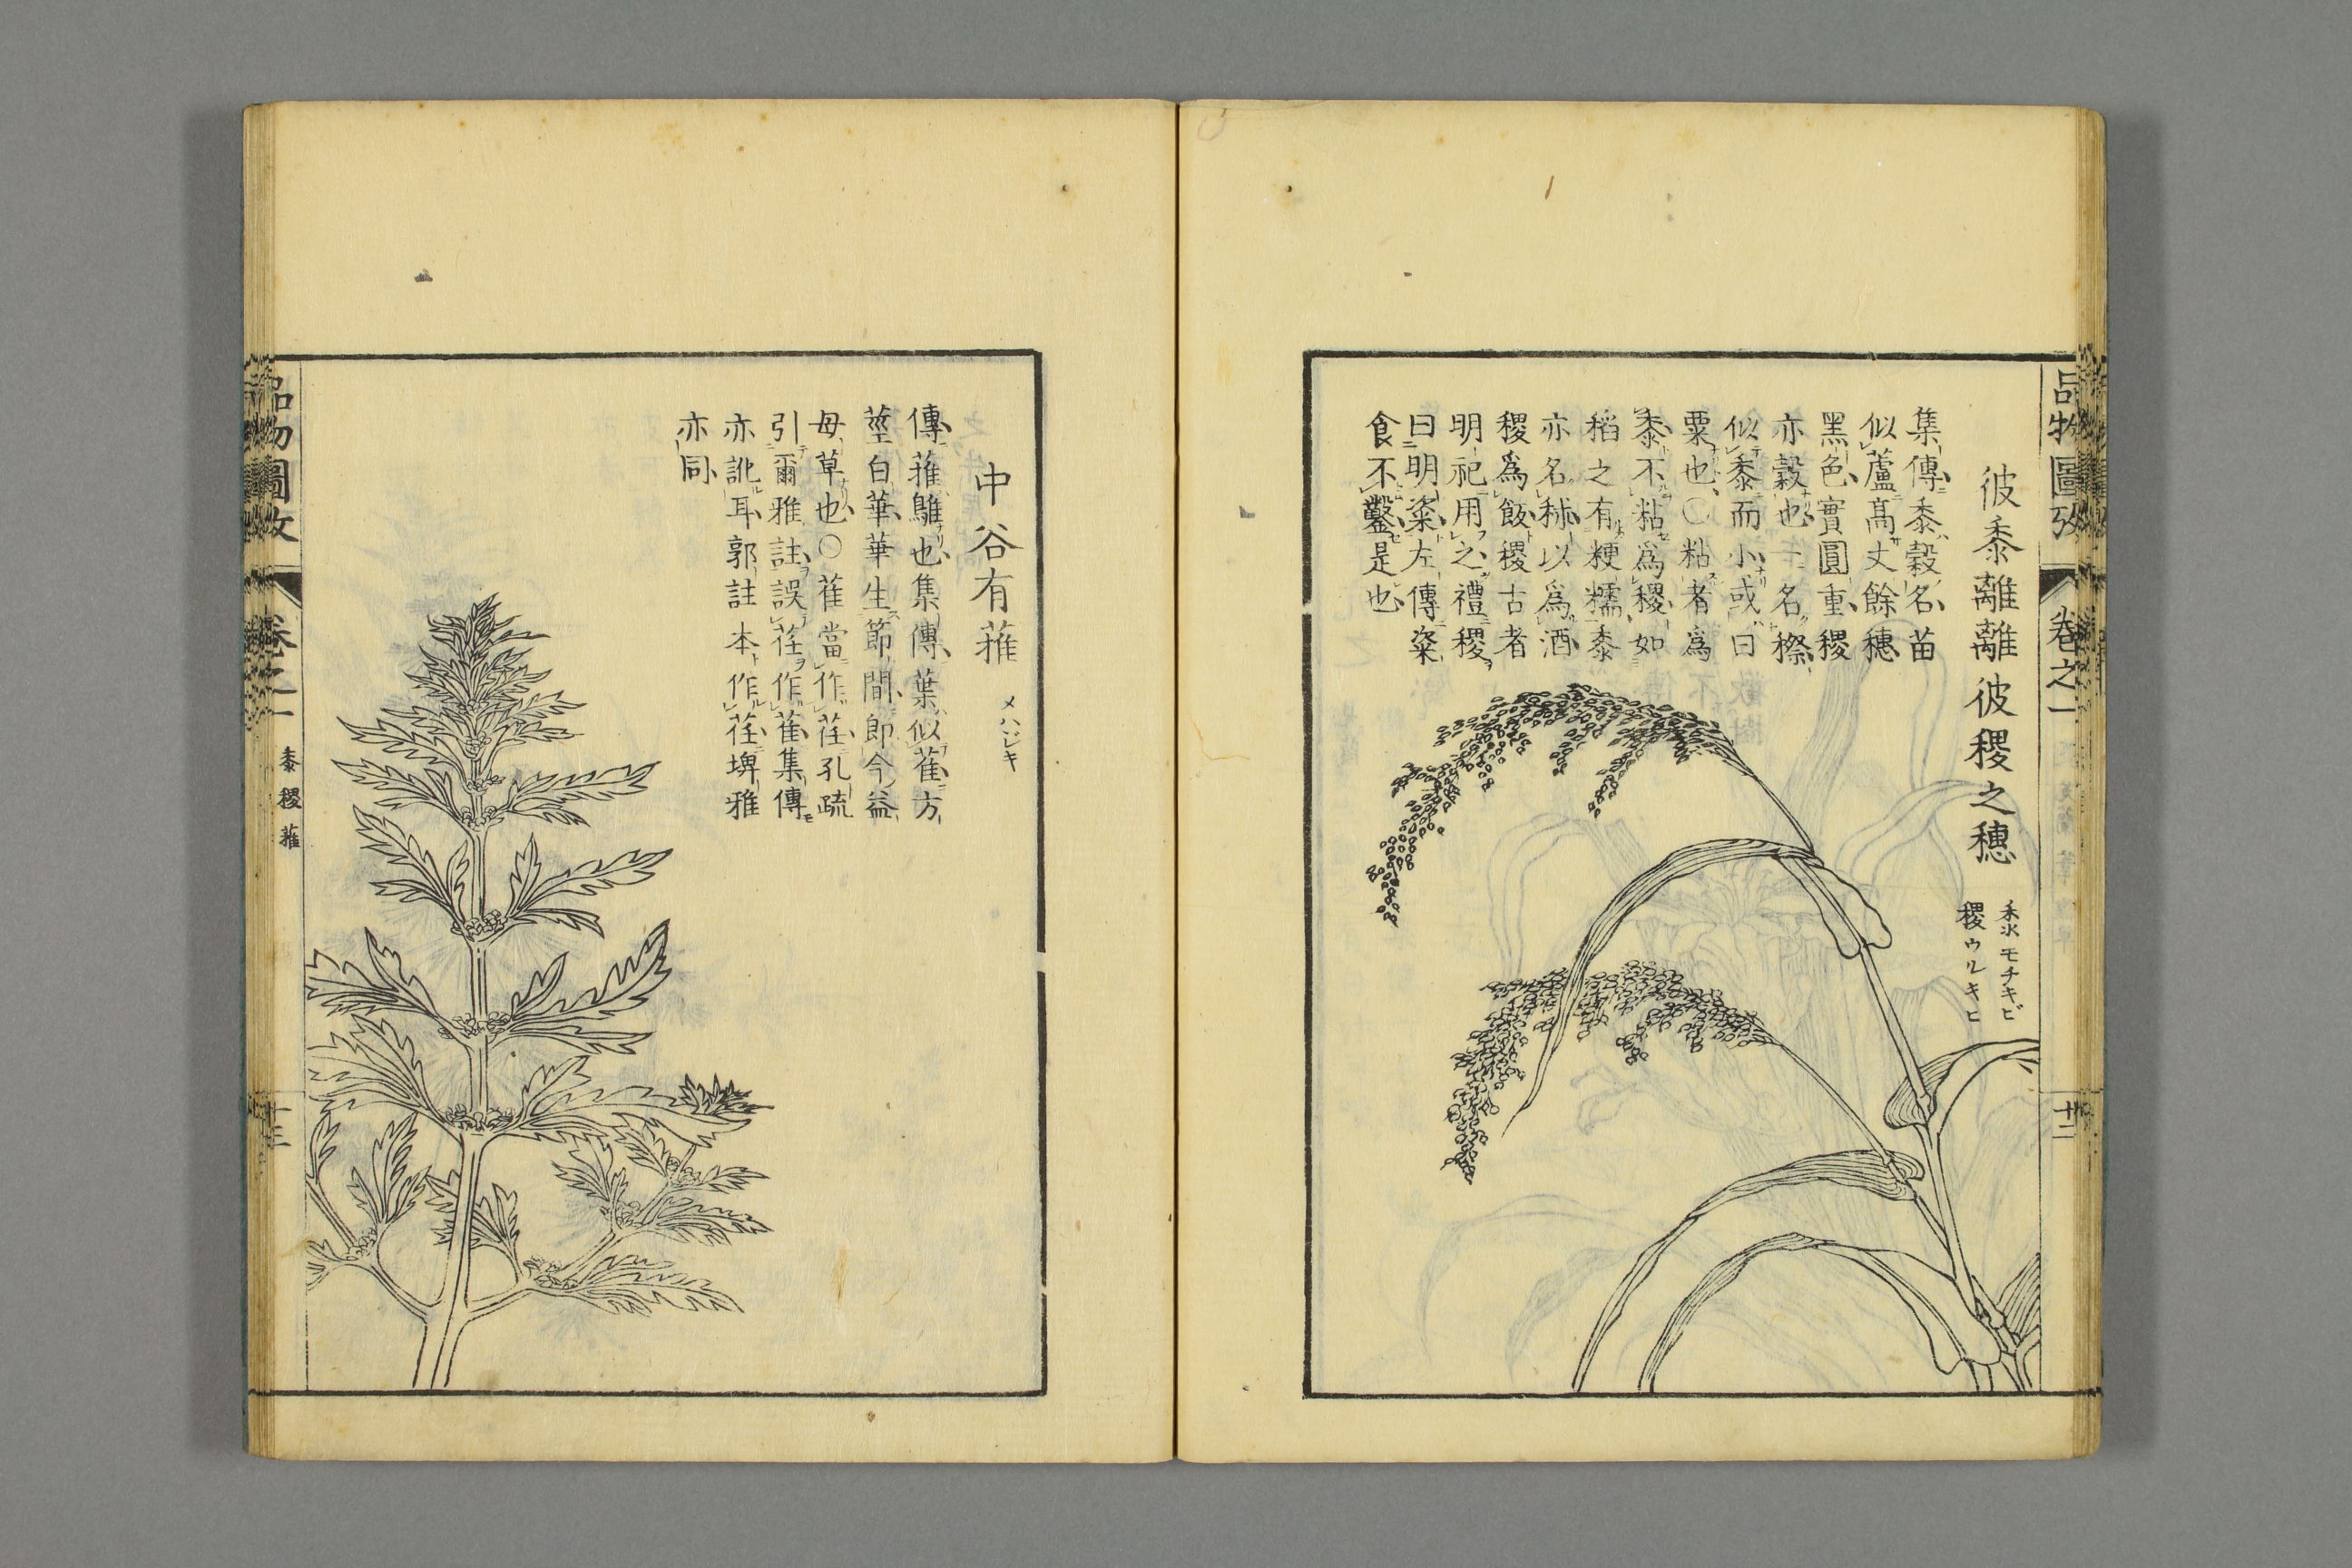 品物圖攷
卷之一
十二
彼黍離離彼稷之穗
黍モチキビ
稷ウルキヒ
集傳黍穀名苗
似蘆高丈餘穗
黑色實圓重稷
亦穀也一名穄
似黍而小或曰
粟也〇粘者爲
黍不粘爲稷如
稻之有粳糯黍
亦名秫以爲酒
稷爲飯稷古者
明祀用之禮稷
曰明粢左傳粢
食不鑿是也
中谷有蓷
メハジキ
傳蓷鵻也集傳葉似萑方
莖白華華生節間即今益
母草也〇萑當作茬孔疏
引爾雅註誤茬作萑集傳
亦訛耳郭註本作茬埤雅
亦同
品物圖攷
卷之一
黍稷蓷
十三